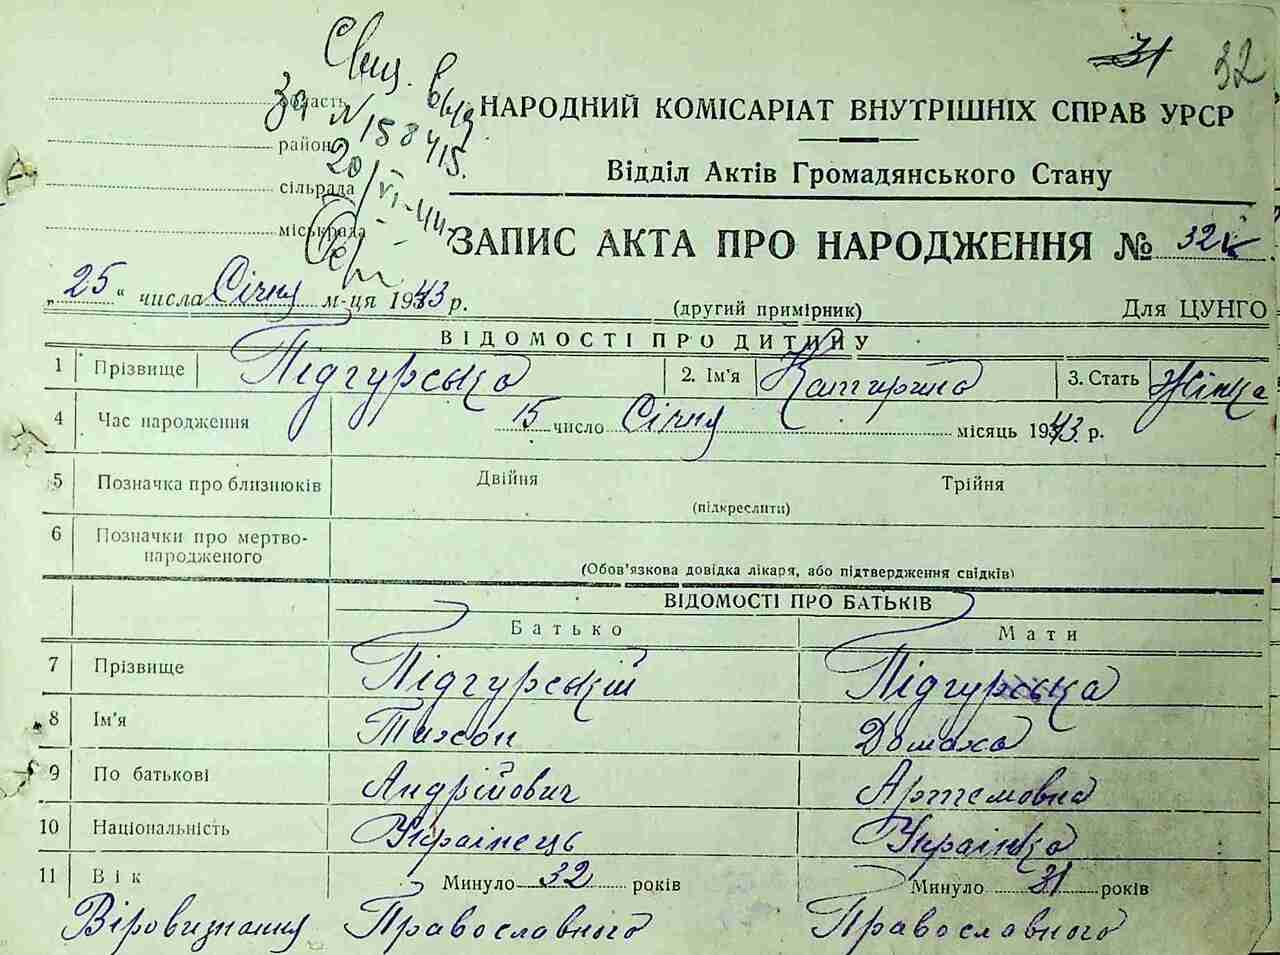 31 32
Свид. выд
за № 158415.
20/VI-44
область
район
сільрада
міськрада
НАРОДНИЙ КОМІСАРІАТ ВНУТРІШНІХ СПРАВ УРСР
Відділ Актів Громадянського Стану
ЗАПИС АКТА ПРО НАРОДЖЕННЯ № 32
„25“ числа Січня м-ця 1943 р. (другий примірник) Для ЦУНГО
ВІДОМОСТІ ПРО ДИТИНУ
1 Прізвище Підгурська 2. Ім'я Катирина 3. Стать Жінка
4 Час народження 15 число Січня місяць 1943 р.
5 Позначка про близнюків Двійня Трійня
(підкреслити)
6 Позначки про мертво-
народженого
(Обов'язкова довідка лікаря, або підтвердження свідків)
ВІДОМОСТІ ПРО БАТЬКІВ
Батько Мати
7 Прізвище Підгурській Підгурська
8 Ім'я Тихон Домаха
9 По батькові Андрійович Артемовна
10 Національність Украінець Украінка
11 Вік Минуло 32 років Минуло 31 років
Віровизнання Православного Православного